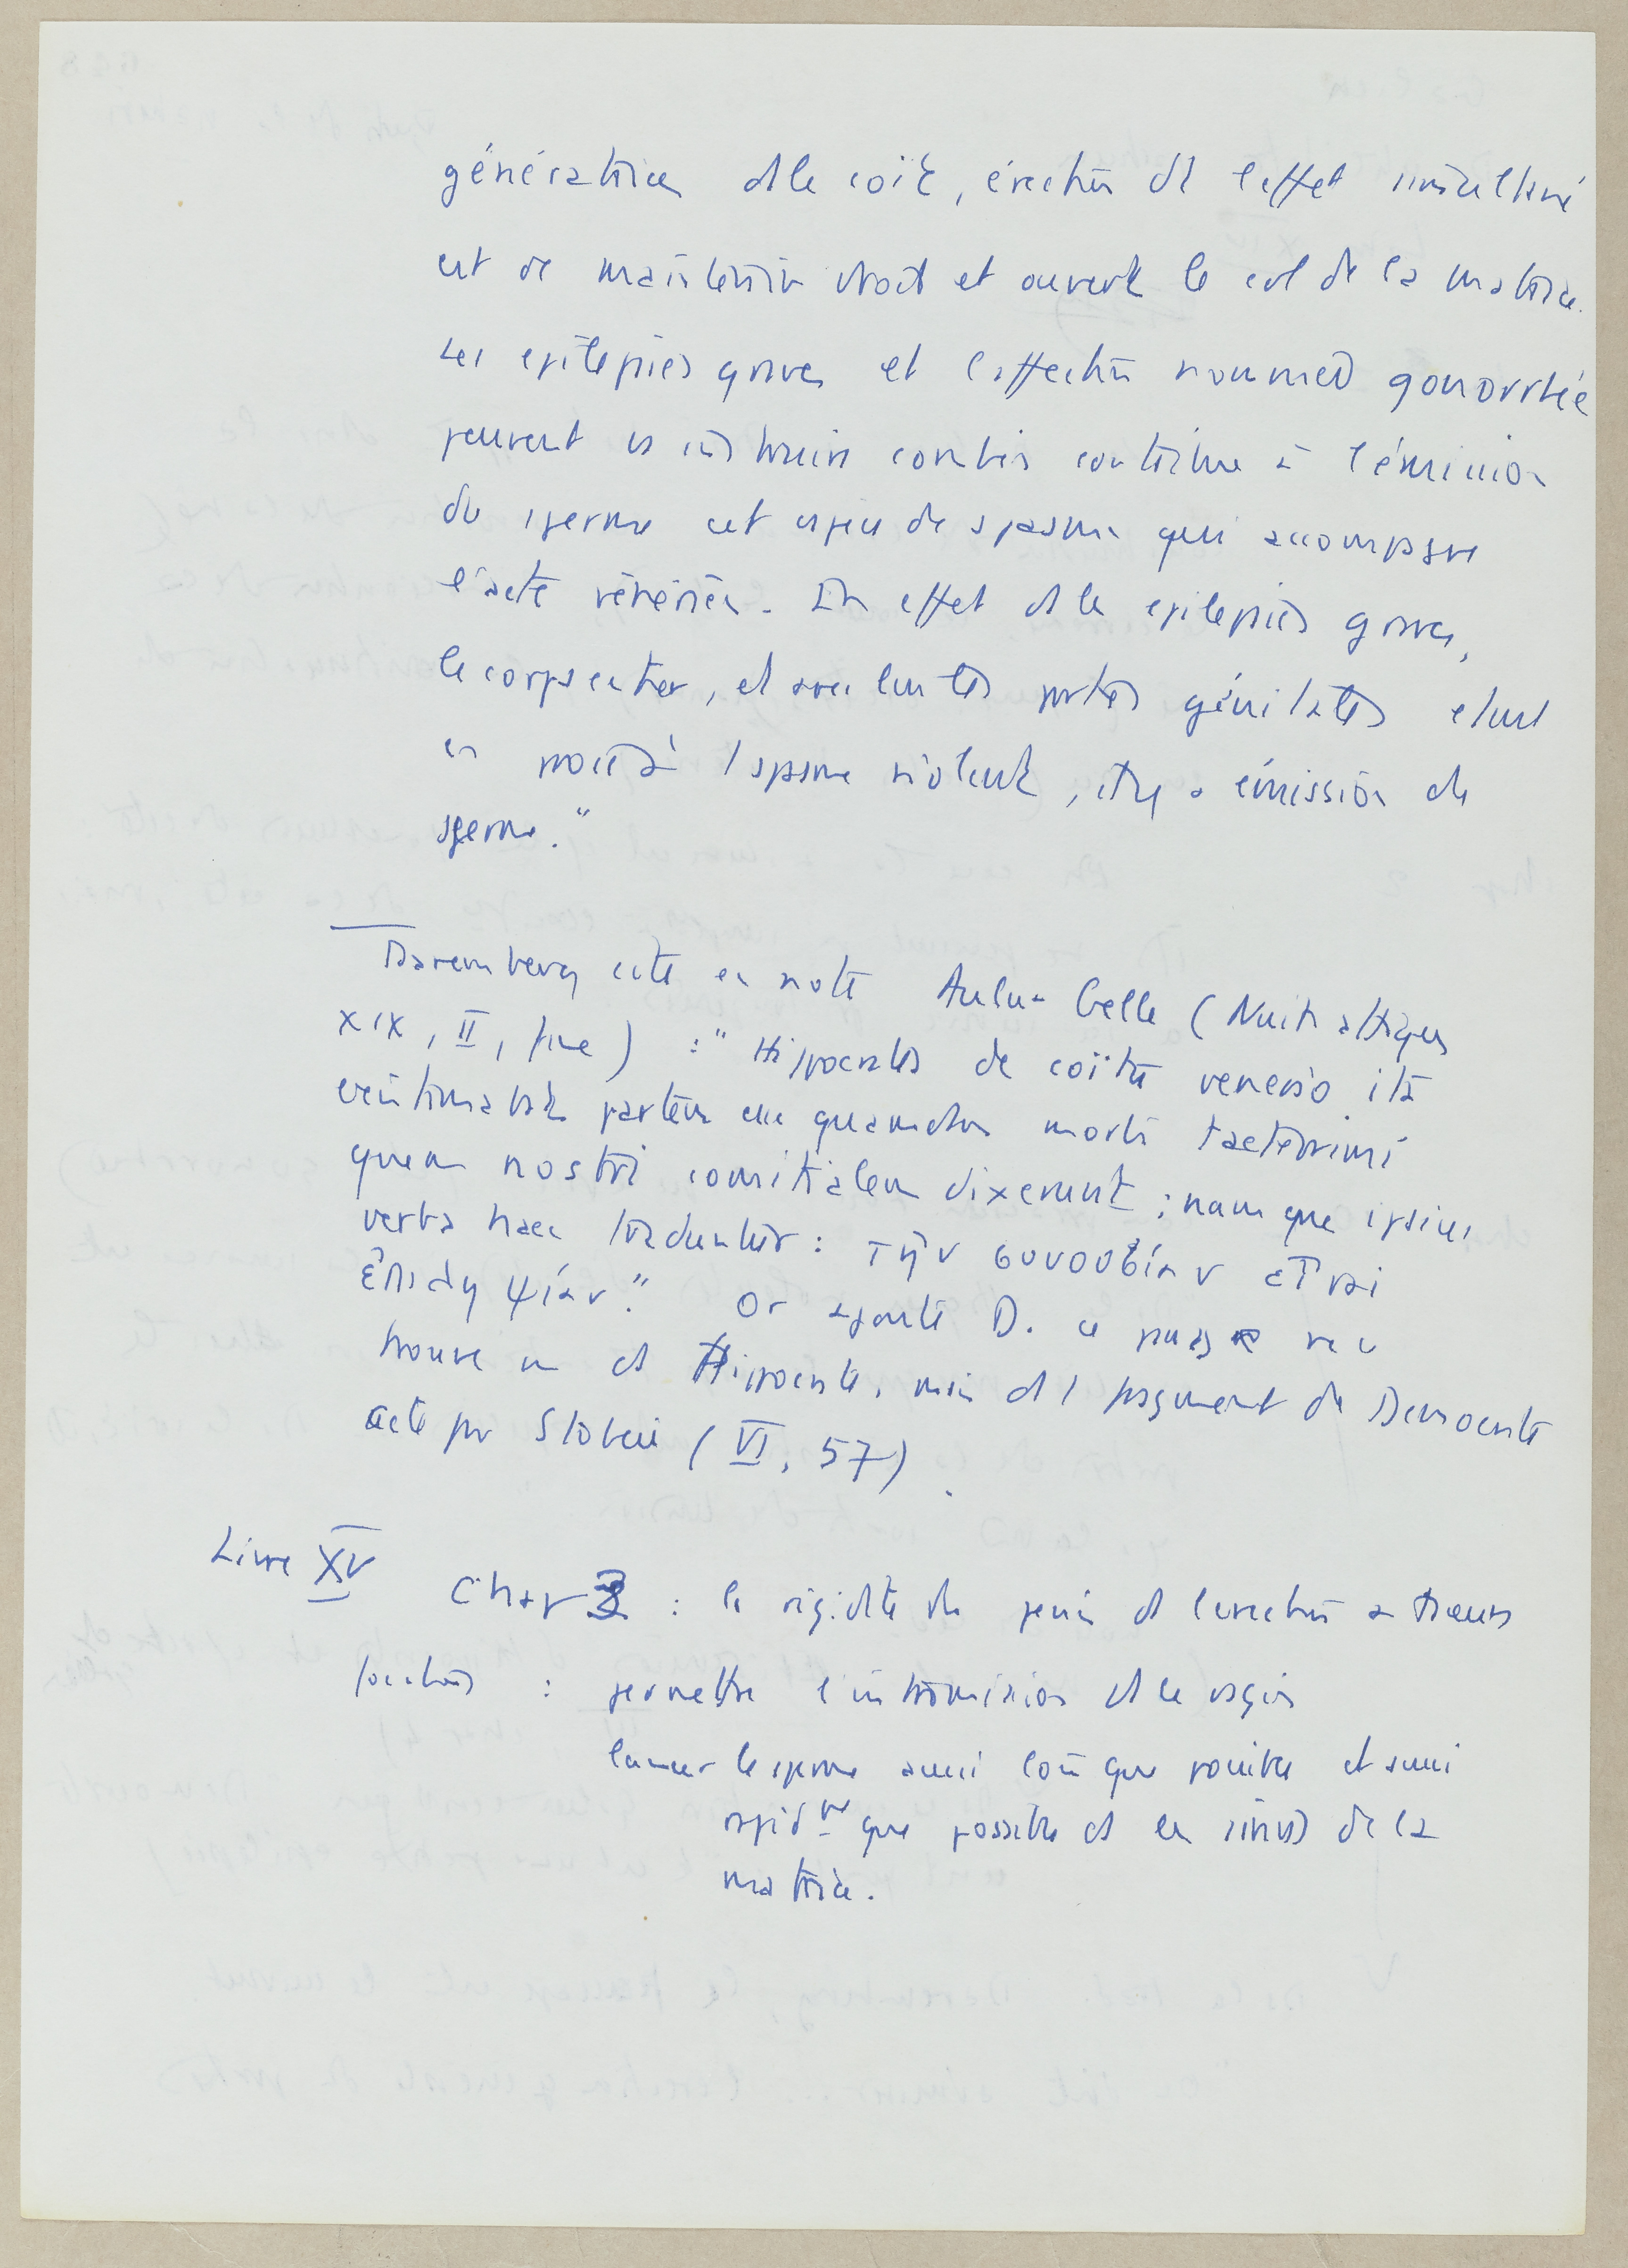 génératrices ds le coït, érection dt l'effet simultané
est de maintenir droit et ouvert le col de la matrice.
Les epilepsies graves et l'affection nommée gonorrhée
peuvent vs instruire combien contribue à l'émission
du sperme cet espèce de spasme qui accompagne
l'acte vénérien. En effet ds les epilepsies graves,
le corps entier, et avec lui les parties génitales etant
en proie à 1 spasme violent, il y a émission de
sperme."
Daremberg cite en note Aulu-Gelle (Nuits attiques
XIX, II, fine) : "Hippocrates de coïtu venereo ita
existimabat partem esse quamdam morbi taeterrimi
quem nostri comitialem dixerunt ; namque ipsius
verba haec traduntur : τὴν συνουσίαν εἶναι
ἐπιληψίαν." Or ajoute D. ce passage ne se
trouve pas ds Hippocrate, mais ds 1 fragment de Democrite
cité par Stobée (VI, 57).
Livre XV
Chap 3 : la rigidité du penis et l'erection a plusieurs
fonctions : permettre l'intromission ds le vagin
lancer le sperme aussi loin que possible et aussi
rapidmt que possible ds les sinus de la
matrice.